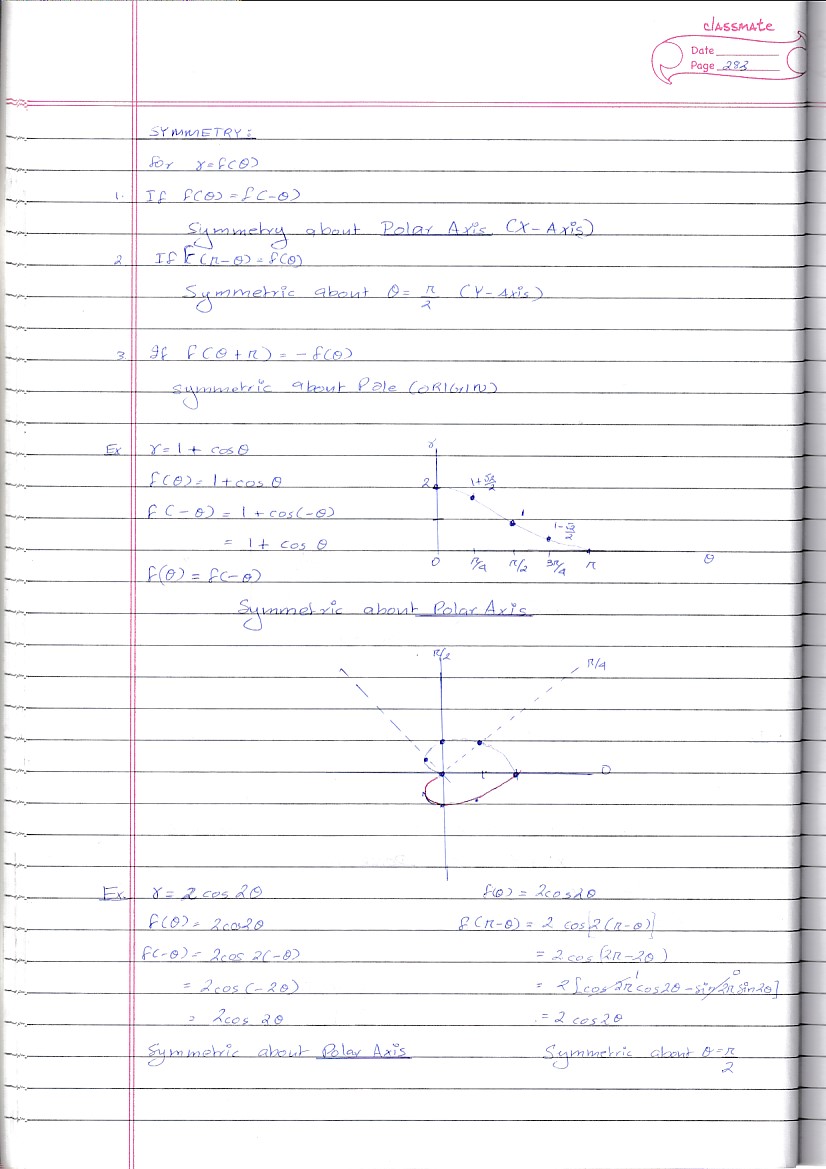 classmate
Date
Page 283
SYMMETRY:
for r=f(θ)
1. If f(θ) = f(-θ)
Symmetry about Polar Axis (X-Axis)
2 If f(π-θ) = f(θ)
Symmetric about θ = π/2 (Y-Axis)
3. If f(θ+π) = -f(θ)
Symmetric about Pole (ORIGIN)
Ex r = 1 + cos θ
f(θ) = 1+cos θ
f(-θ) = 1 + cos(-θ)
= 1 + cos θ
f(θ) = f(-θ)
r
2 1+√2/2
1
1-√2/2
0 π/4 π/2 3π/4 π θ
Symmetric about Polar Axis
π/2
π/4
0
Ex. r = 2 cos 2θ
f(θ) = 2cos2θ
f(-θ) = 2cos 2(-θ)
= 2cos (-2θ)
= 2cos 2θ
Symmetric about Polar Axis
f(θ) = 2cos2θ
f(π-θ) = 2 cos[2(π-θ)]
= 2 cos (2π-2θ)
= 2[cos 2π 1 cos2θ - sin 2π 0 sin2θ]
= 2 cos2θ
Symmetric about θ = π/2